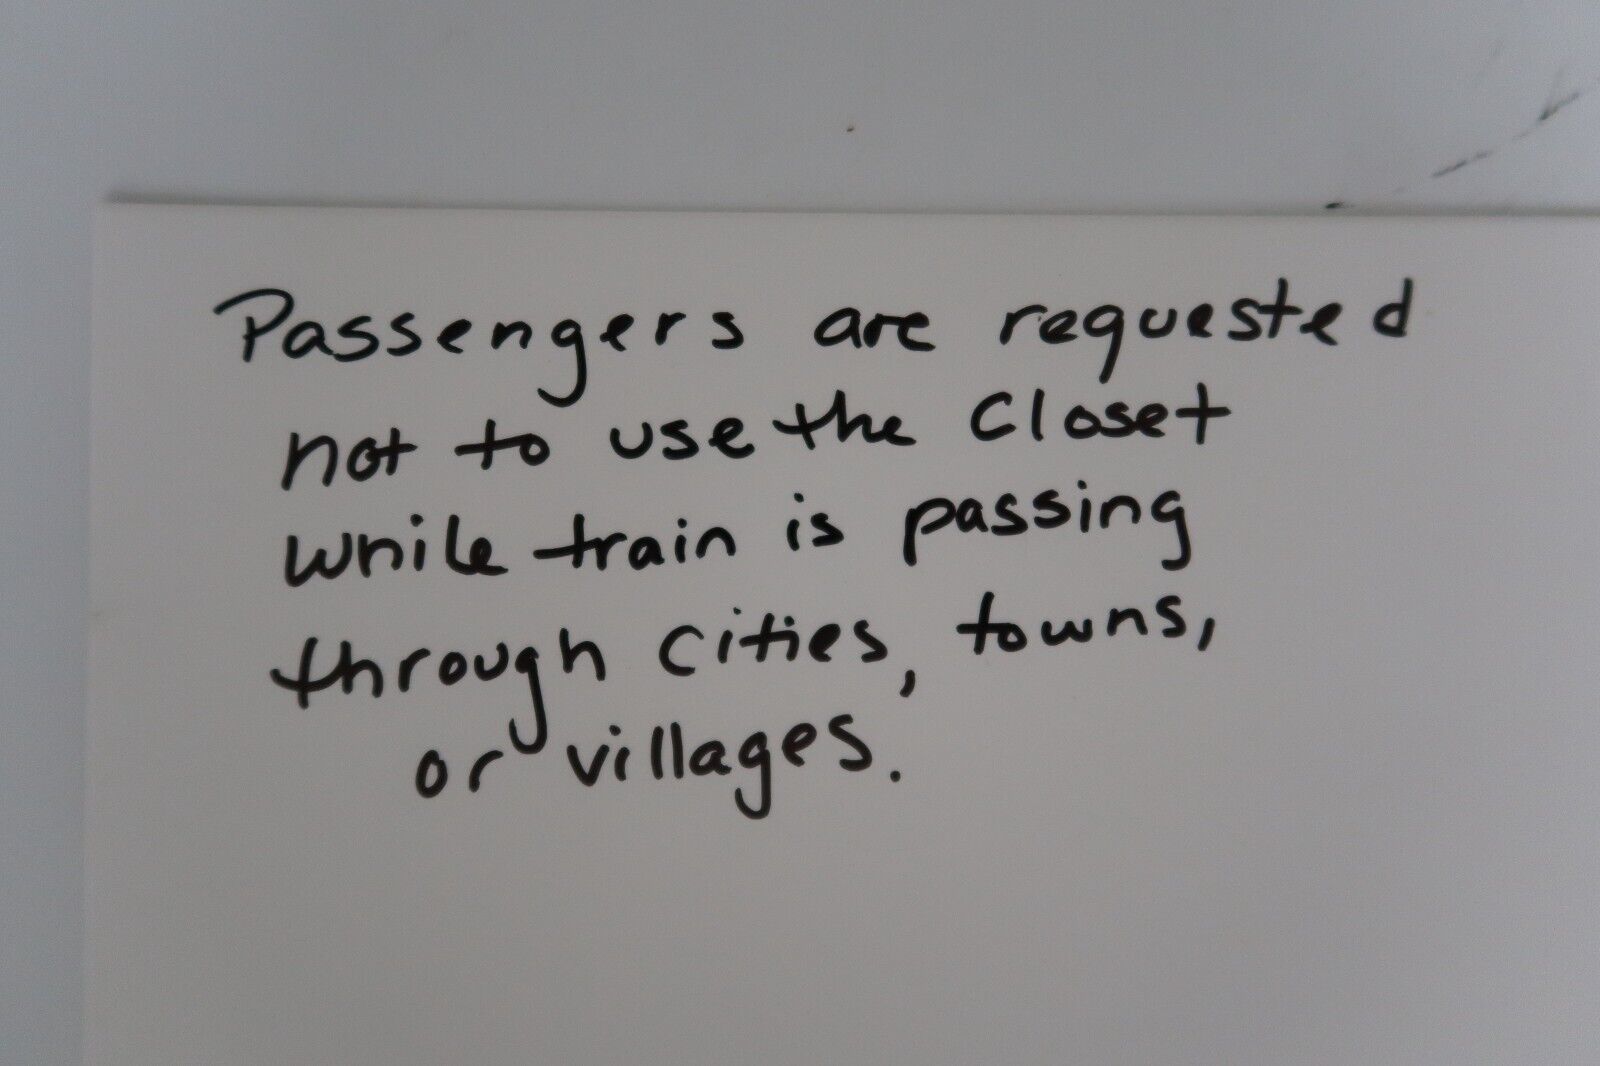 Passengers are requested
not to use the Closet
while train is passing
through cities, towns,
or villages.